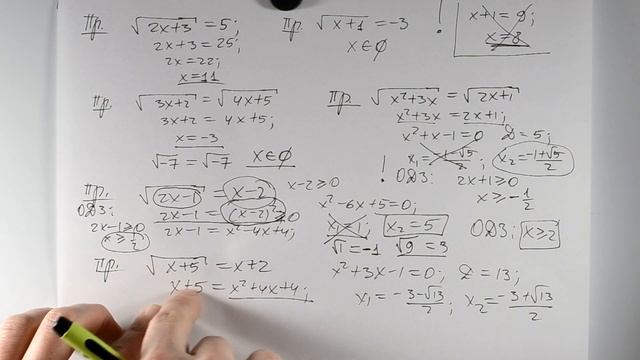 Пр. √(2x+3) = 5;
2x+3 = 25;
2x = 22;
x = 11
Пр. √(x+1) = -3
x ∈ ∅
! x+1 = 9;
x = 8
Пр. √(3x+2) = √(4x+5)
3x+2 = 4x+5;
x = -3
√-7 = √-7 x ∈ ∅
Пр. √(x²+3x) = √(2x+1)
x²+3x = 2x+1;
x²+x-1=0 D = 5;
x₁ = (-1-√5)/2; x₂ = (-1+√5)/2
! ОДЗ: 2x+1 ≥ 0
x ≥ -1/2
Пр. √(2x-1) = x-2 x-2 ≥ 0
ОДЗ: 2x-1 = (x-2)² ≥ 0
2x-1 ≥ 0 2x-1 = x²-4x+4;
x ≥ 1/2
x²-6x+5=0;
x₁ = 1; x₂ = 5 ОДЗ: x ≥ 2
√1 = -1 √9 = 3
Пр. √(x+5) = x+2
x+5 = x²+4x+4;
x²+3x-1=0; D = 13;
x₁ = (-3-√13)/2; x₂ = (-3+√13)/2